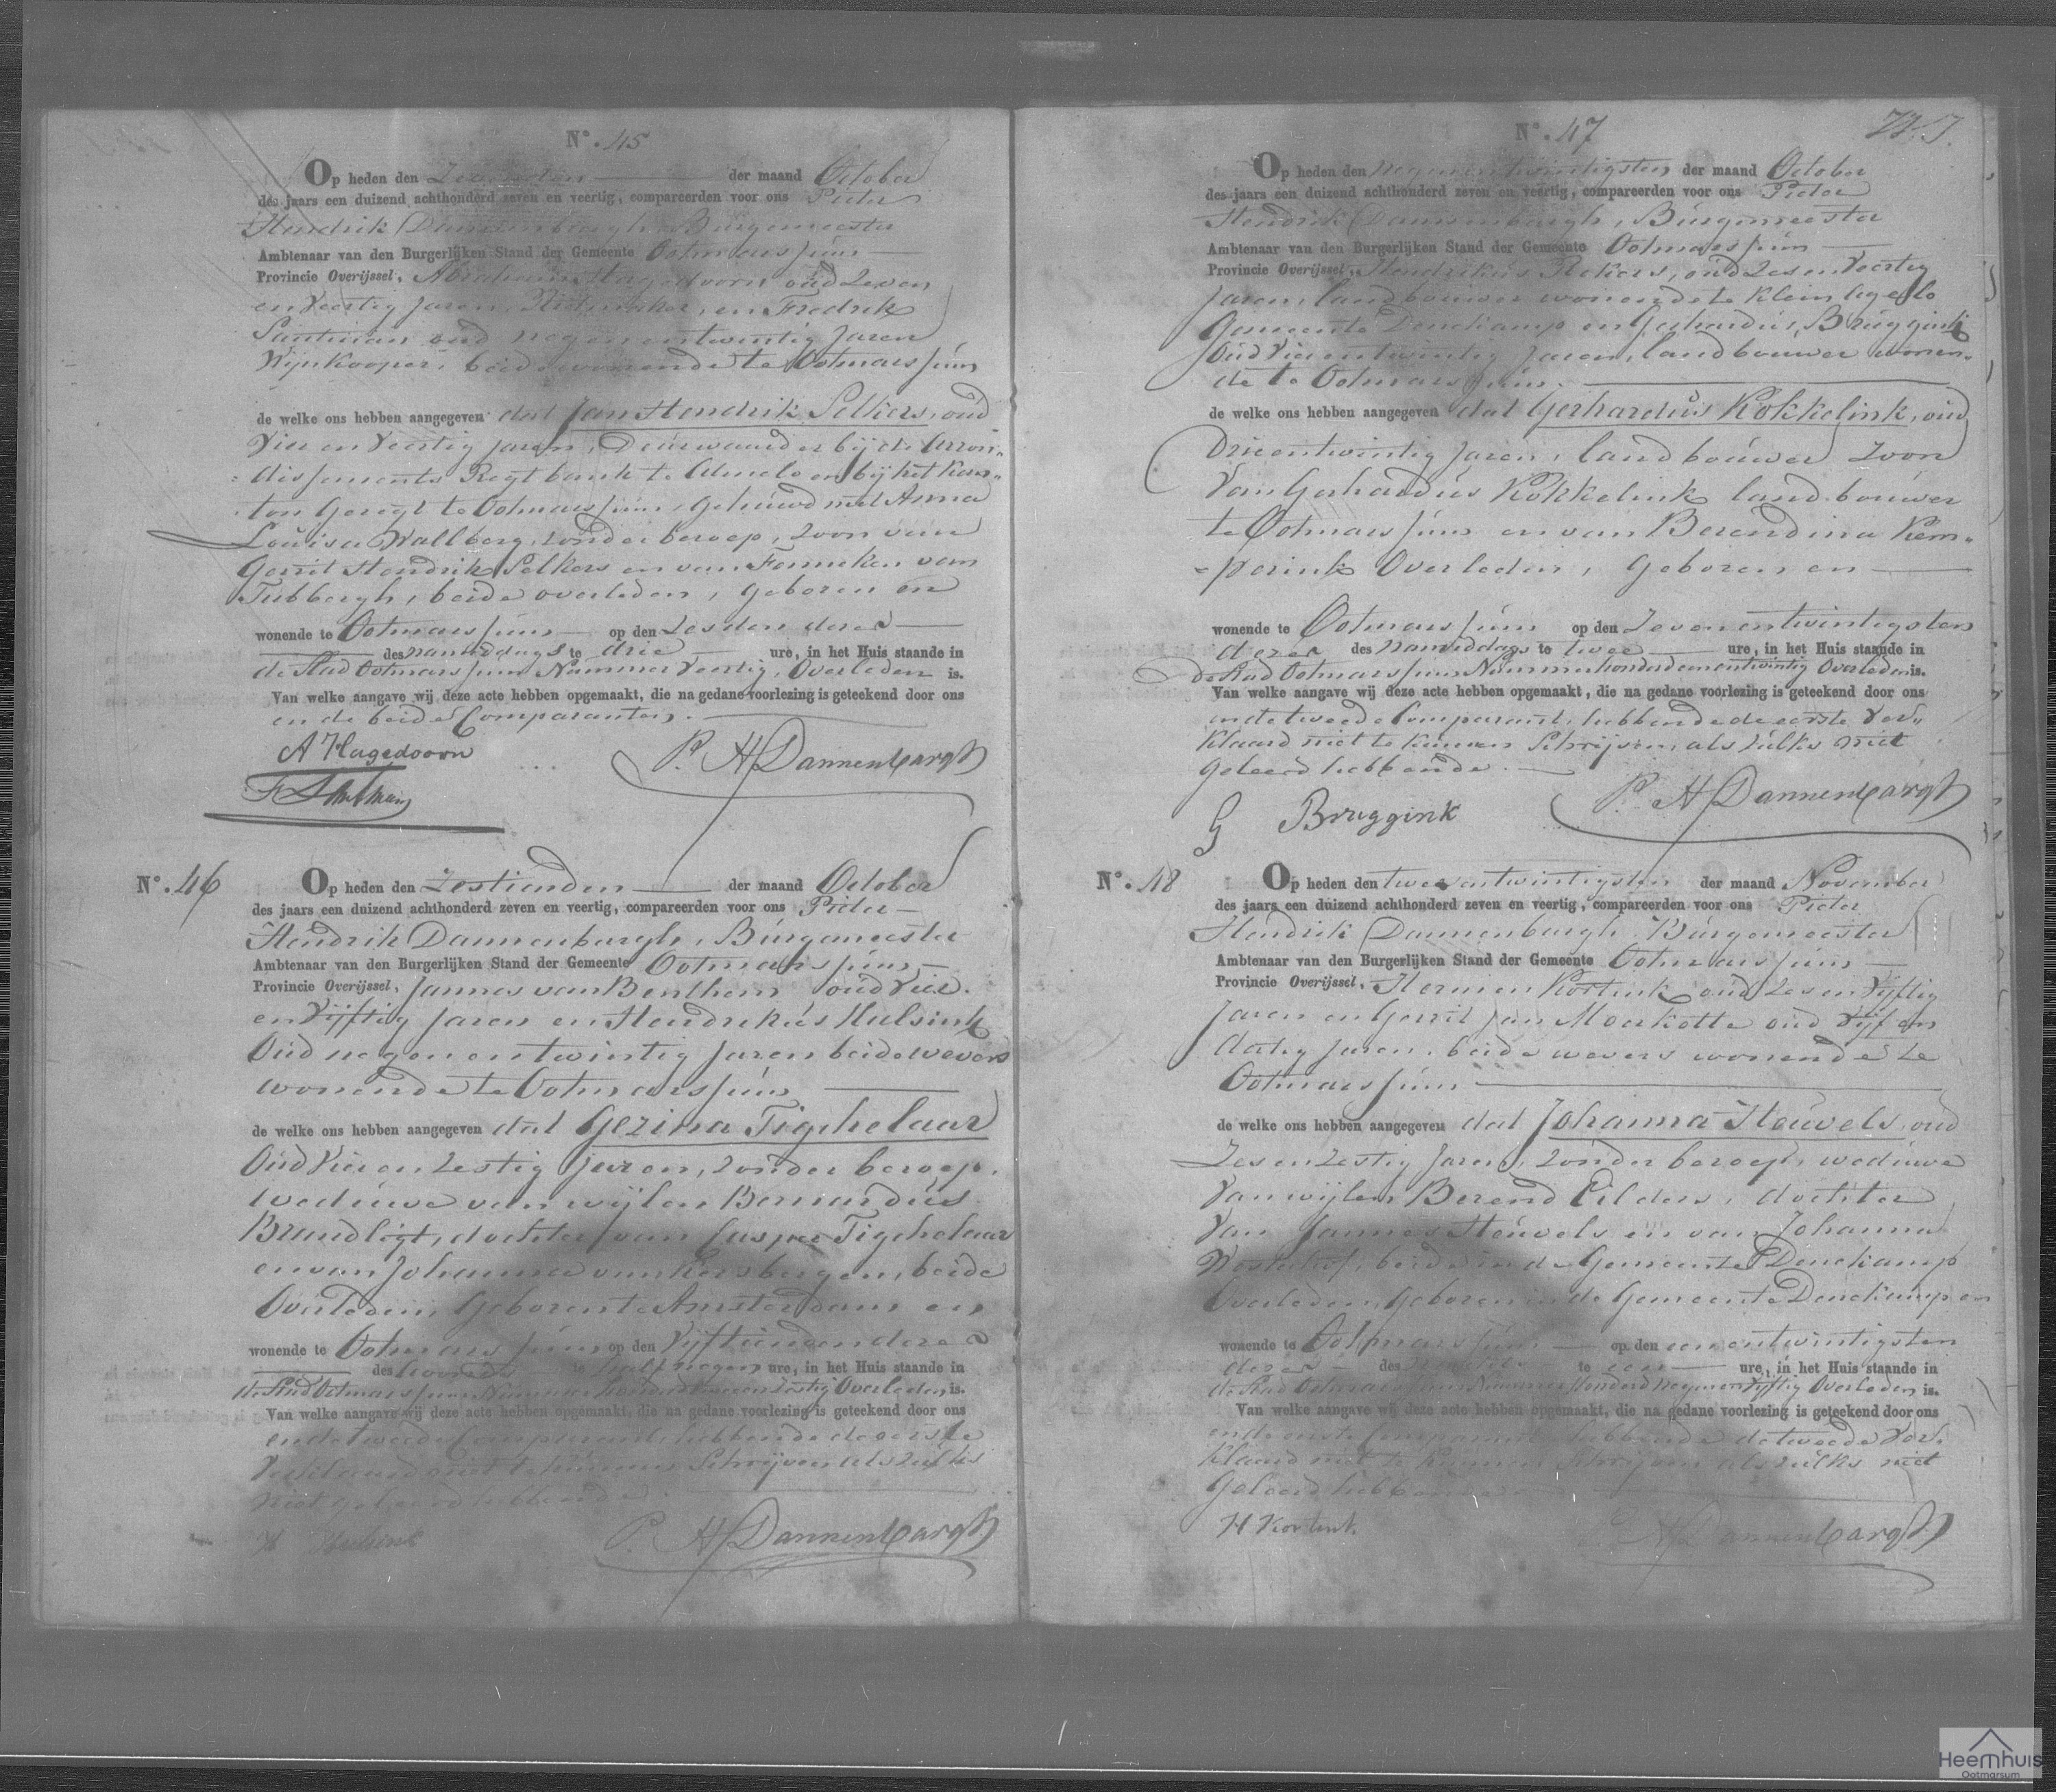 N°. 45
Op heden den Zevenden der maand October
des jaars een duizend achthonderd zeven en veertig, compareerden voor ons Pieter
Hendrik Dannenbargh, Burgemeester
Ambtenaar van den Burgerlijken Stand der Gemeente Ootmarssum
Provincie Overijssel, Abraham Hagedoorn oud Zeven
en Veertig Jaren, en Fredrik
Santman oud negenentwintig Jaren
Wijnkooper, beide wonende te Ootmarssum
de welke ons hebben aangegeven dat Jan Hendrik Selkers, oud
Vier en Veertig jaren, Deurwaarder bij de Arron„
dissements Regtbank te Almelo en bij het Kan„
ton Geregt te Ootmarssum, gehuwd met Anna
Louisa Wallberg, zonder beroep, zoon van
Gerrit Hendrik Selkers en van Fenneken van
Tubbergh, beide overleden, geboren en
wonende te Ootmarssum op den Zesden dezer
des namiddags te drie ure, in het Huis staande in
de Stad Ootmarssum Nummer Veertig, Overleden is.
Van welke aangave wij deze acte hebben opgemaakt, die na gedane voorlezing is geteekend door ons
en de beide Comparanten.
A Hagedoorn
P. H Dannenbargh
F Santman
N°. 46
Op heden den Zestienden der maand October
des jaars een duizend achthonderd zeven en veertig, compareerden voor ons Pieter
Hendrik Dannenburgh, Burgemeester
Ambtenaar van den Burgerlijken Stand der Gemeente Ootmarssum
Provincie Overijssel, Jannes van Benthem oud Vier
en Vijftig Jaren en Hendrekus Hulsink
Oud negen en twintig Jaren beide wevers
wonende te Ootmarssum
de welke ons hebben aangegeven dat Gezina Tigchelaar
Oud Vier en Zestig Jaren, zonder beroep,
weduwe van wijlen Bernardus
Brandligt, dochter van Casper Tigchelaar
en van Johanna van Kersbergen, beide
Overleden, Geboren te Amsterdam en
wonende te Ootmarssum op den Vijftienden dezer
des avonds te half negen ure, in het Huis staande in
de Stad Ootmarssum Nummer Overleden is.
Van welke aangave wij deze acte hebben opgemaakt, die na gedane voorlezing is geteekend door ons
en de tweede Comparant, hebbende de eerste
Verklaard niet te kunnen Schrijven, als zulks
niet geleerd hebbende.
H Hulsink
P. H Dannenbargh
N°. 47
Op heden den negenentwintigsten der maand October
des jaars een duizend achthonderd zeven en veertig, compareerden voor ons Pieter
Hendrik Dannenburgh, Burgemeester
Ambtenaar van den Burgerlijken Stand der Gemeente Ootmarssum
Provincie Overijssel, Hendrikus Rekers, oud Zes en Veertig
Jaren, landbouwer wonende te Klein Agelo
Gemeente Denekamp en Gerhardus Bruggink
Oud Vierentwintig Jaren, landbouwer wonen„
de te Ootmarssum.
de welke ons hebben aangegeven dat Gerhardus Kokkelink, oud
Drieentwintig Jaren, landbouwer Zoon
Van Gerhardus Kokkelink landbouwer
te Ootmarssum en van Berendina Kem„
perink Overleden, Geboren en
wonende te Ootmarssum op den Zevenentwintigsten
dezer des namiddags te twee ure, in het Huis staande in
de Stad Ootmarssum Nummer honderdeenentwintig Overleden is.
Van welke aangave wij deze acte hebben opgemaakt, die na gedane voorlezing is geteekend door ons
en de tweede Comparant, hebbende de eerste Ver„
klaard niet te kunnen Schrijven, als zulks niet
Geleerd hebbende.
P. H Dannenbargh
G Bruggink
N°. 48
Op heden den tweeentwintigsten der maand November
des jaars een duizend achthonderd zeven en veertig, compareerden voor ons Pieter
Hendrik Dannenburgh Burgemeester
Ambtenaar van den Burgerlijken Stand der Gemeente Ootmarssum
Provincie Overijssel, Hermen Kortink oud Zes en Vijftig
Jaren en Gerrit Jan Moerkotte oud Vijf en
dertig Jaren, beide wevers wonende te
Ootmarssum
de welke ons hebben aangegeven dat Johanna Heuvels, oud
Zes en Zestig Jaren, zonder beroep, weduwe
Van wijlen Berend Eilders, dochter
Van Jannes Heuvels en van Johanna
beide in de Gemeente Denekamp
Overleden, Geboren in de Gemeente Denekamp en
wonende te Ootmarssum op den eenentwintigsten
dezer des te een ure, in het Huis staande in
de Stad Ootmarssum Nummer Honderd negenenvijftig Overleden is.
Van welke aangave wij deze acte hebben opgemaakt, die na gedane voorlezing is geteekend door ons
en de eerste Comparant hebbende de tweede Ver„
klaard niet te kunnen Schrijven als zulks niet
Geleerd hebbende
H Kortink
P. H Dannenbargh
Heemhuis
Ootmarsum